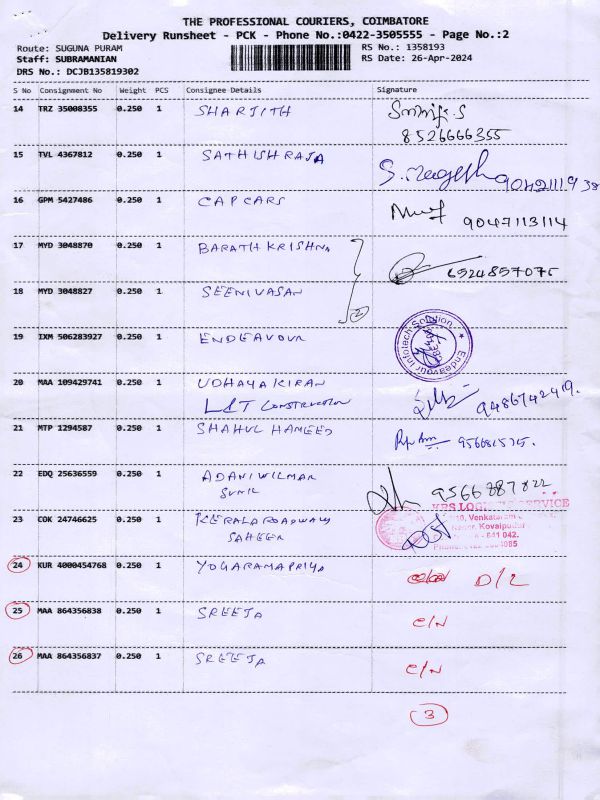 THE PROFESSIONAL COURIERS, COIMBATORE
Delivery Runsheet - PCK - Phone No.:0422-3505555 - Page No.:2
Route: SUGUNA PURAM
RS No.: 1358193
Staff: SUBRAMANIAN
RS Date: 26-Apr-2024
DRS No.: DCJB135819302
S No Consignment No Weight PCS Consignee Details Signature
14 TRZ 35008355 0.250 1 SHARJITH
8526666355
15 TVL 4367812 0.250 1 SATHISHRAJA S. Nagesh
16 GPM 5427486 0.250 1 CAPCARS
9047113114
17 MYD 3048870 0.250 1 BARATH KRISHNA
6524857075
18 MYD 3048827 0.250 1 SEENIVASAN
2
19 IXM 506283927 0.250 1 ENDEAVOUR
Endeavour Infotech Solution
20 MAA 109429741 0.250 1 UDHAYAKIRAN
L&T CONSTRUCTION 9486742419.
21 MTP 1294587 0.250 1 SHAHUL HAMEED
22 EDQ 25636559 0.250 1 ADANI WILMAR
SUNIL 9566887822
23 COK 24746625 0.250 1 KERALA ROADWAYS
SAHEER
SERVICE
Venkataram
Nagar, Kovaipudur
641 042.
24 KUR 4000454768 0.250 1 YOGARAMAPRIYA D/L
25 MAA 864356838 0.250 1 SREEJA C/N
26 MAA 864356837 0.250 1 SREEJA C/N
3